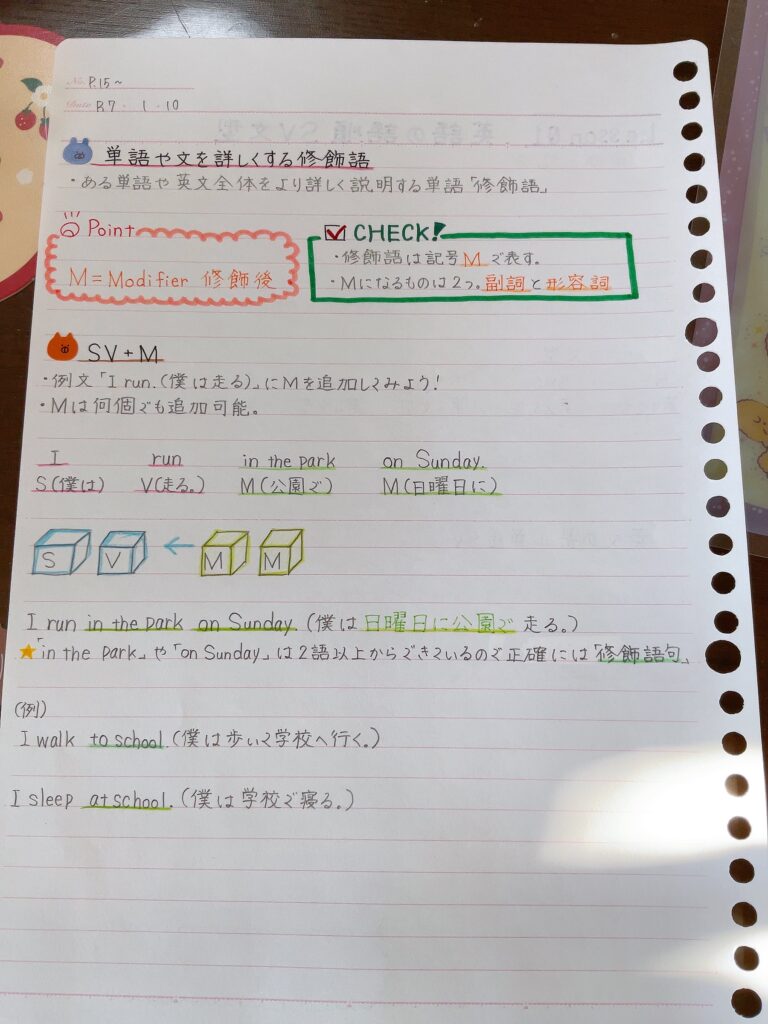 No. P.15~
Date R7・1・10
単語や文を詳しくする修飾語
・ある単語や英文全体をより詳しく説明する単語「修飾語」
Point
M=Modifier 修飾後
CHECK!
・修飾語は記号Mで表す。
・Mになるものは2つ。副詞と形容詞
SV+M
・例文「I run.(僕は走る)」にMを追加してみよう!
・Mは何個でも追加可能。
I run in the park on Sunday.
S(僕は) V(走る。) M(公園で) M(日曜日に)
S V ← M M
I run in the park on Sunday.(僕は日曜日に公園で走る。)
★「in the park」や「on Sunday」は2語以上からできているので正確には「修飾語句」
(例)
I walk to school.(僕は歩いて学校へ行く。)
I sleep at school.(僕は学校で寝る。)